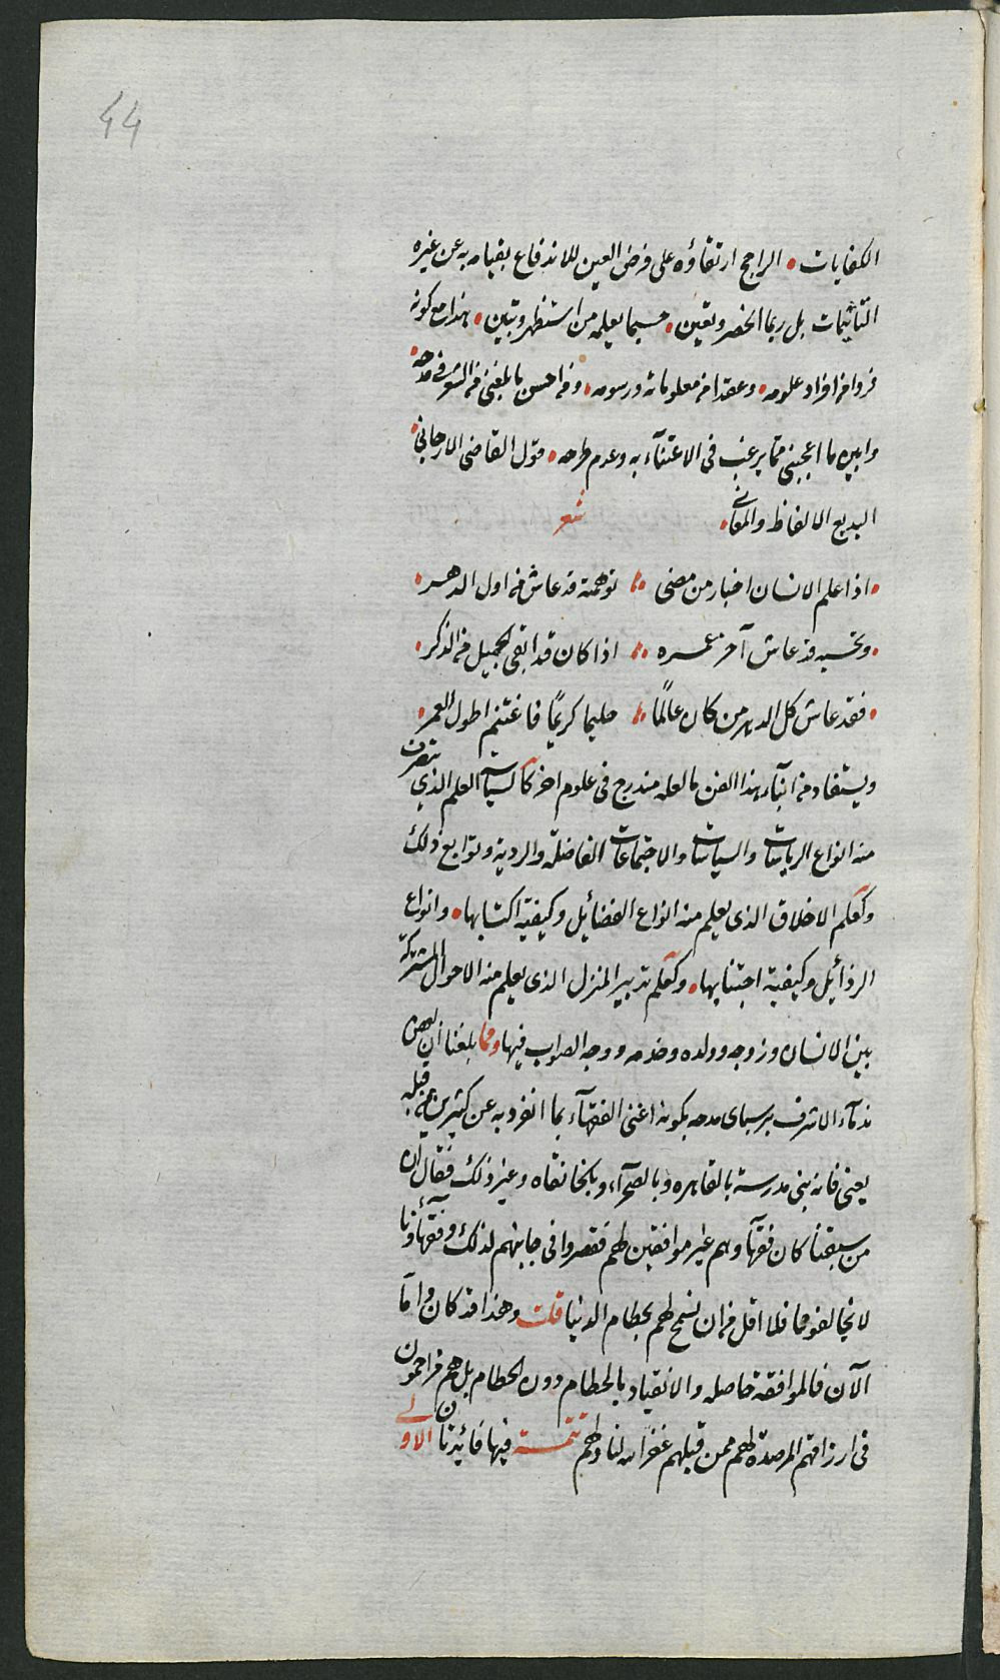 44
الكفايات • الراجح ارتقاؤه على فرض العين للاندفاع بقيامه به عن غيره
التأثيمات بل ربما انحصر وتعين • حسبما يعلمه من استظهر وتبين • هذا مع كونه
فردا من افراد علومه • وعقدا من معلوماته ورسومه • ومن احسن ما بلغني من الشعر في مدحه •
وابين ما اعجبني مما يرغب في الاعتناء به وعدم طرحه • قول القاضي الارجاني •
البديع الالفاظ والمعاني • شعر
• اذا علم الانسان اخبار من مضى ؞ توهمته قد عاش من اول الدهر •
• وتحسبه قد عاش آخر عمره ؞ اذا كان قد ابقى الجميل من الذكر •
• فقد عاش كل الدهر من كان عالمًا ؞ حليما كريمًا فاغتنم اطول العمر •
ويستفاد من اثناء هذا الفن ما لعله مندرج في علوم اخر كالسياسة العلم الذي يتعرف
منه انواع الرياسات والسياسات والاجتماعات الفاضلة والردية وتوابع ذلك
وكعلم الاخلاق الذي يعلم منه انواع الفضائل وكيفية اكتسابها • وانواع
الرذائل وكيفية اجتنابها • وكعلم تدبير المنزل الذي يعلم منه الاحوال المشتركة
بين الانسان وزوجه وولده وخدمه ووجه الصواب فيها ومما بلغنا ان بعض
ندماء الاشرف برسباى مدحه بكونه اغنى الفقهاء بما انفرد به عن كثير ممن قبله
يعني فانه بنى مدرسة بالقاهرة وبالصحراء وبالخانقاه وغير ذلك فقال ان
من سبقنا كان فقهاء وهم غير موافقين لهم فقصروا في جانبهم لذلك وفقهاؤنا
لا يخالفونا فلا اقل من ان نسمح لهم بحطام الدنيا قلت وهذا قد كان واما
الآن فالموافقة حاصله والانقياد بالخطام دون الحطام بل هم مزاحمون
في ارزاقهم المرصدة لهم ممن قبلهم غفر الله لنا ولهم تتمة فيها فائدتان الاولى